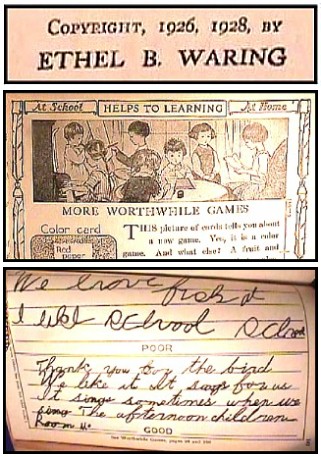 COPYRIGHT, 1926, 1928, BY
ETHEL B. WARING
At School HELPS TO LEARNING At Home
MORE WORTHWHILE GAMES
Color card
Red
paper
THIS picture of cards tells you about
a new game. Yes, it is a color
game. And what else? A fruit and
We have fish
I like School
POOR
Thank you for the bird
We like it It sings for us
It sings sometimes when we
sing The afternoon children
Room
GOOD
See Worthwhile Games, pages